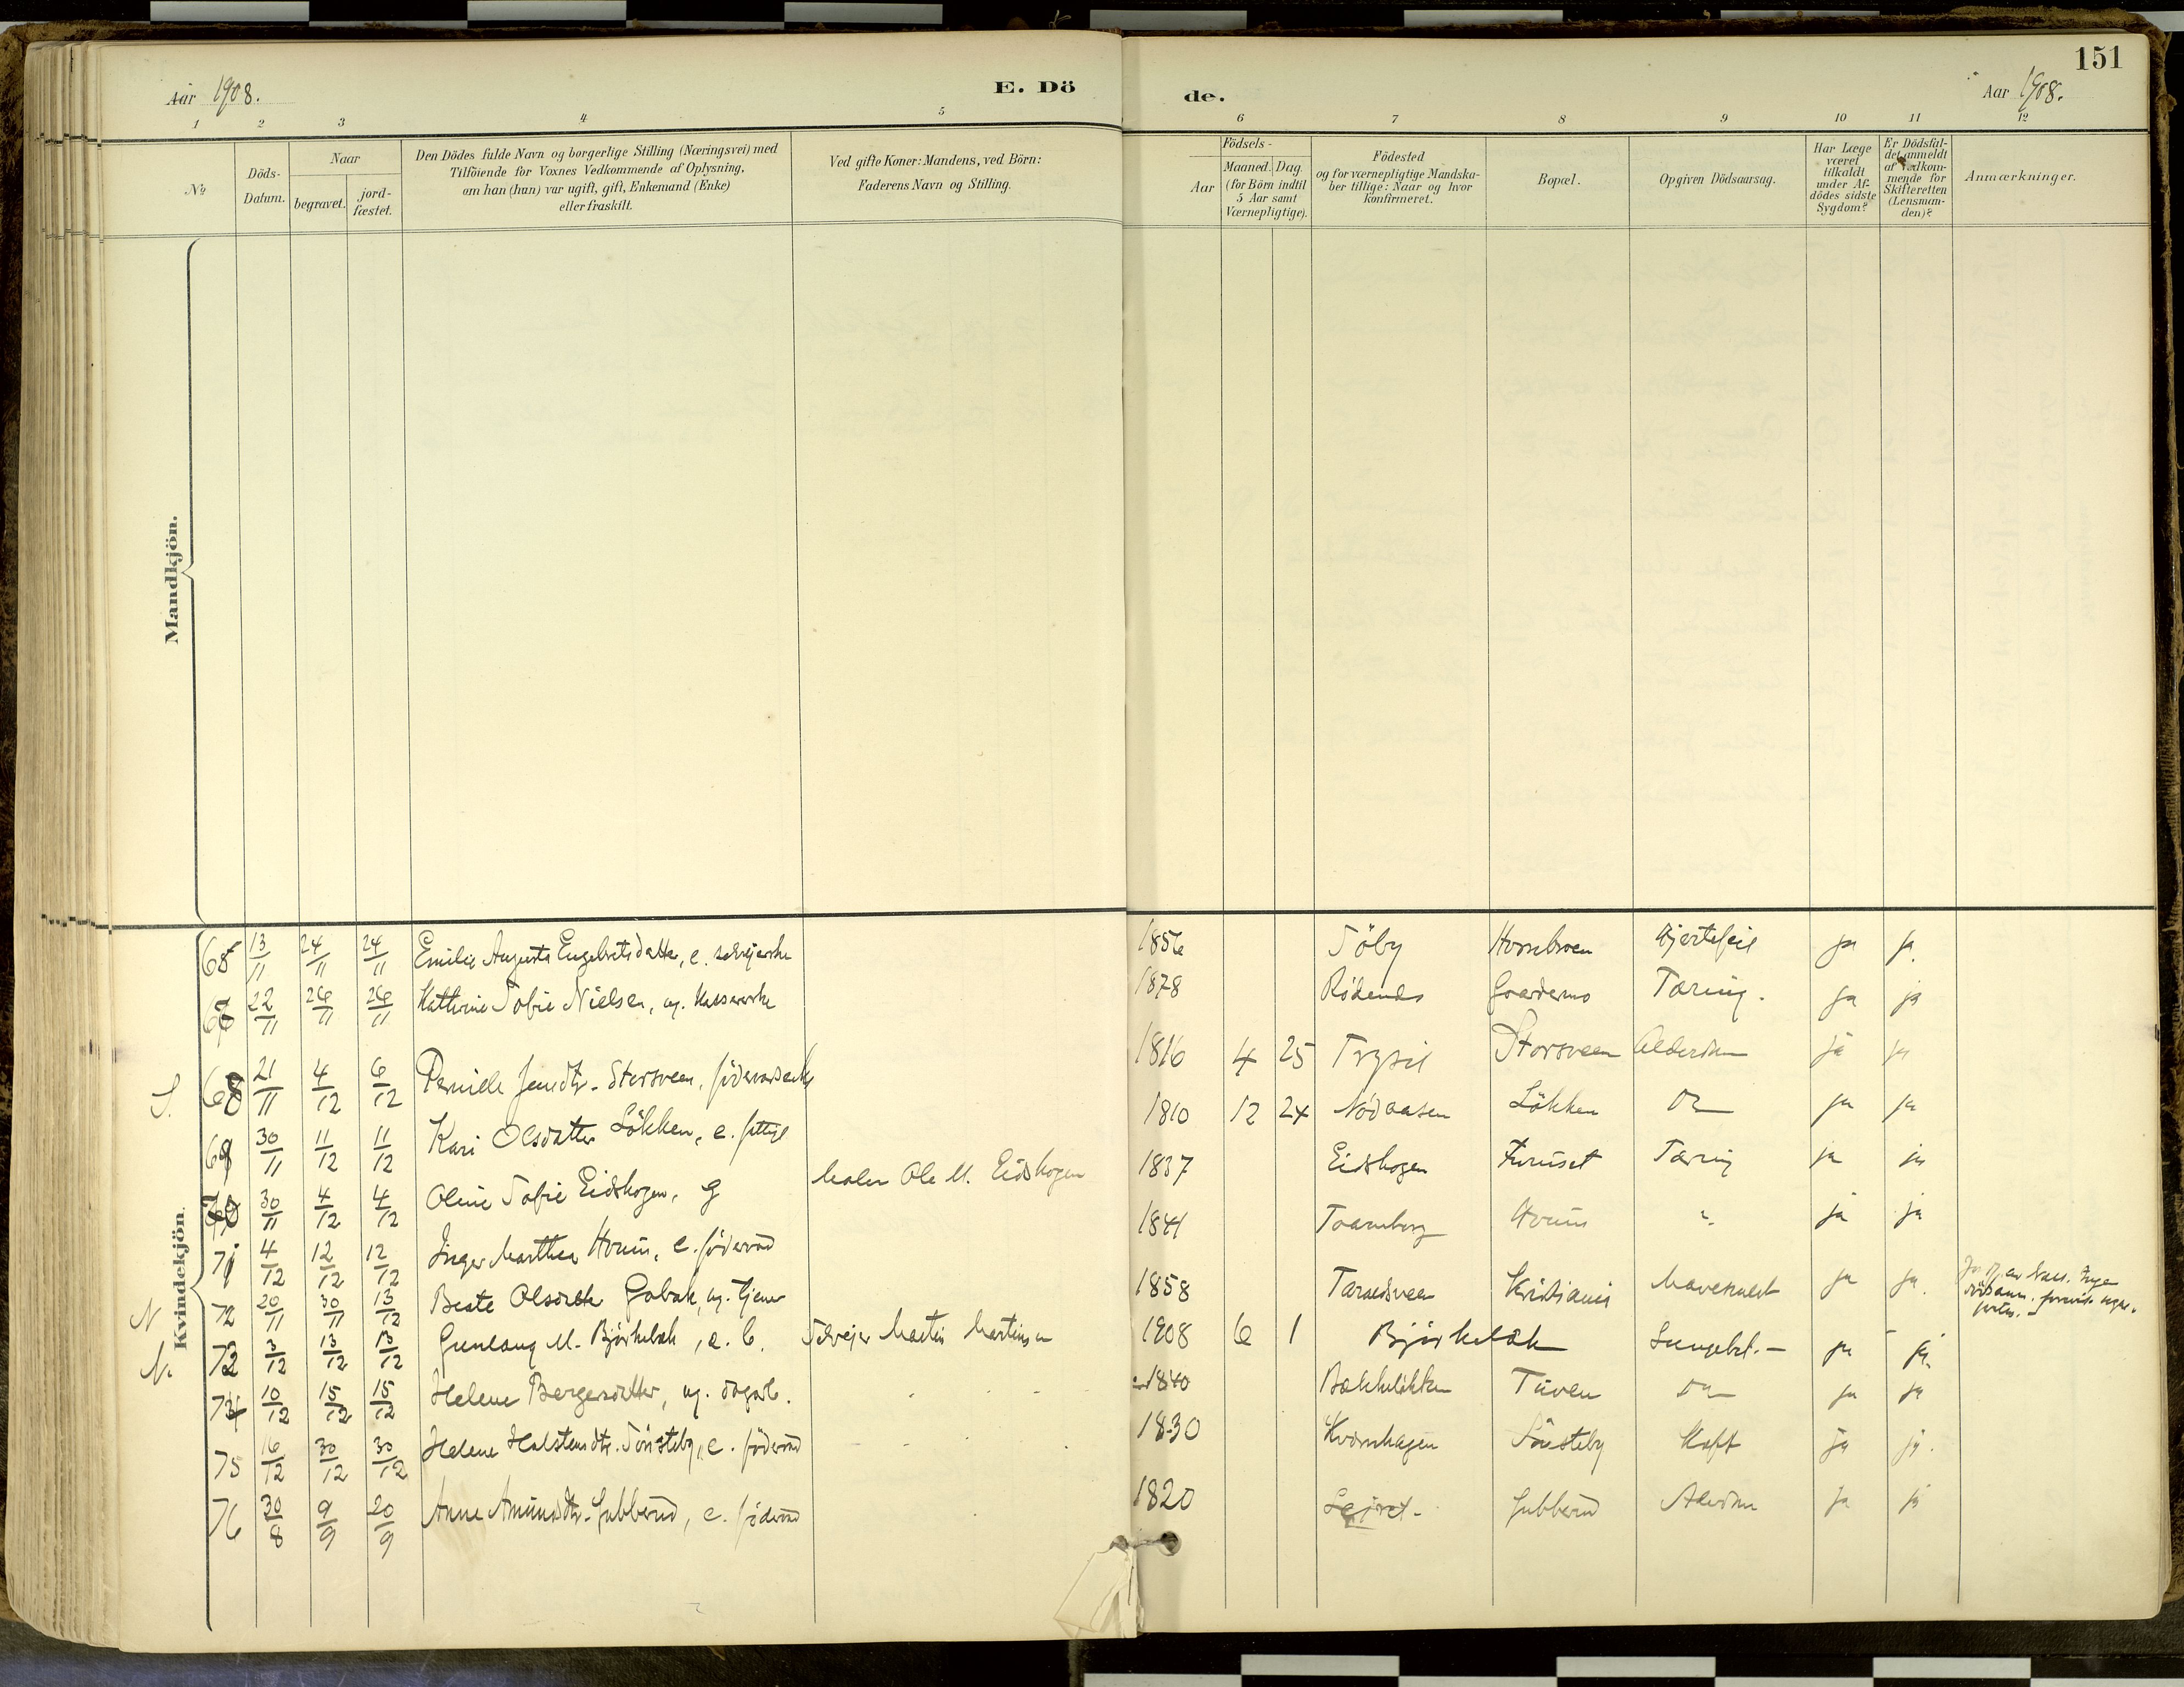 151
Aar 1908. E. Dö de. Aar 1908.
1 2 3 4 5 6 7 8 9 10 11 12
No
Döds-
Datum.
Naar
begravet.
jord-
fæstet.
Den Dödes fulde Navn og borgerlige Stilling (Næringsvei) med
Tilföiende for Voxnes Vedkommende af Oplysning,
om han (hun) var ugift, gift, Enkemand (Enke)
eller fraskilt.
Ved gifte Koner: Mandens, ved Börn:
Faderens Navn og Stilling.
Födsels-
Aar
Maaned. Dag.
(for Börn indtil
5 Aar samt
Værnepligtige).
Födested
og for værnepligtige Mandska-
ber tillige: Naar og hvor
konfirmeret.
Bopæl.
Opgiven Dödsaarsag.
Har Læge
været
tilkaldt
under Af-
dödes sidste
Sygdom?
Er Dödsfal-
det anmeldt
af Vedkom-
mende for
Skifteretten
(Lensman-
den)?
Anmærkninger.
Mandkjön.
Kvindekjön.
13/11 24/11 24/11 Emilie Augusta Engebretsdatter, e. 1856 Töby Hjertefeil ja ja
22/11 26/11 26/11 Kathrine Sofie Nielsen, ug. 1878 Rödenes Tæring. ja ja
S. 68 21/11 4/12 6/12 Pernille Jensdtr. Storsveen, 1816 4 25 Trysil Storsveen Alderdom ja ja
69 30/11 11/12 11/12 Kari Olsdatter Lökken, e. 1810 12 24 Nödaasen Lökken Do ja ja
70 30/11 4/12 4/12 Oline Sofie Eidskogen, g Maler Ole M. Eidskogen 1837 Eidskogen Furuset Tæring ja ja
71 4/12 12/12 12/12 Inger Marthea Hvum, e. föderaad 1841 Hvum " ja ja
N 72 20/11 30/11 13/12 Beate Olsdatter ug. tjener 1858 Kristiania Mavekræft ja ja.
N. 73 3/12 13/12 13/12 Gunlaug M. Björkebæk, e. b. Selveier Martin Martinsen 1908 6 1 Björkebæk Lungebet. ja ja.
74 10/12 15/12 15/12 Helene Bergersdatter, ug. 1840 Bækkeløkken Tuven Do ja ja
75 16/12 30/12 30/12 Helene Halstensdtr. Sönsteby, e. föderaad 1830 Kværnhagen Sönsteby Kræft ja ja.
76 30/8 9/9 20/9 Anne Amundsdtr. Gubberud, e. föderaad 1820 Gubberud Alderdom ja ja